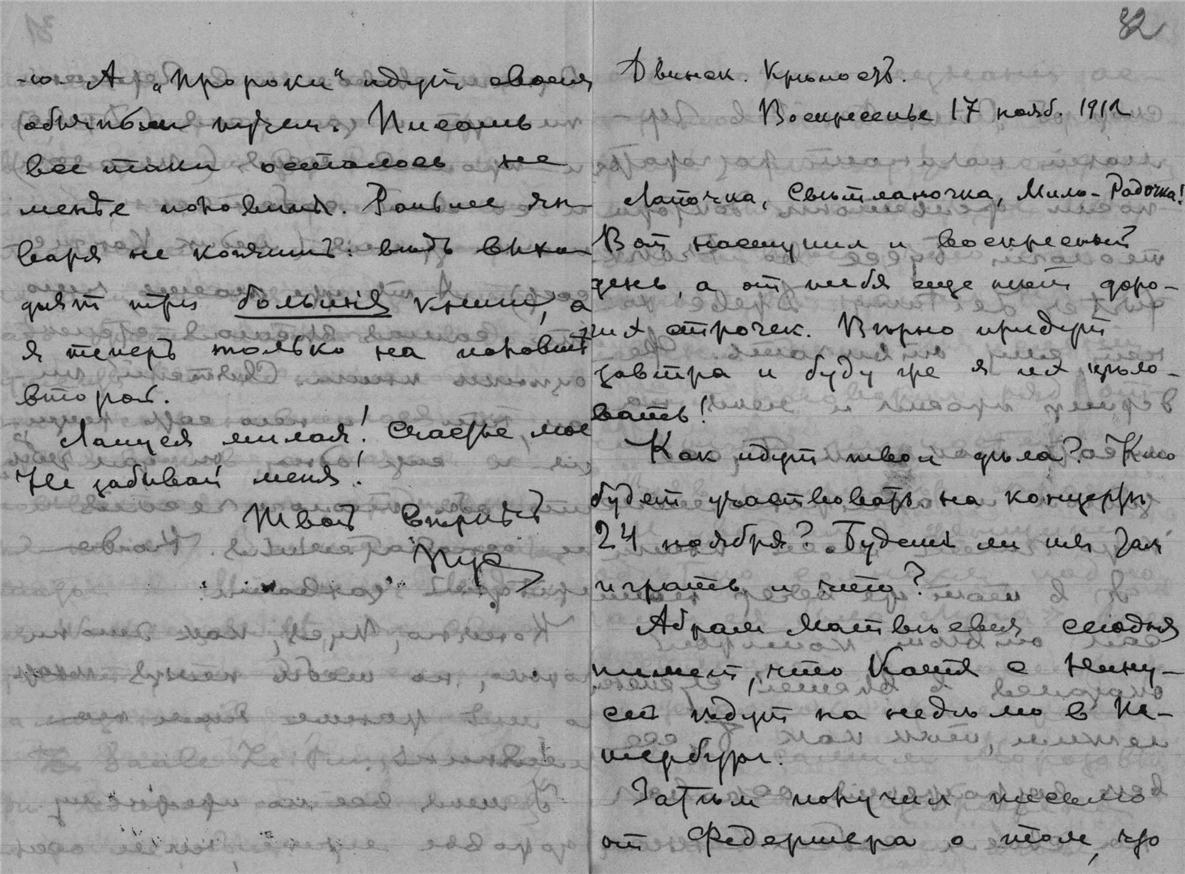 -ю. А „Пророки“ идут своим
обычным путем. Писать
все таки осталось не
менѣе половины. Раньше ян-
варя не кончить: вѣдь выхо-
дят три большія книги, а
я теперь только на половинѣ
второй.
Лапуся милая! Счастье мое
Не забывай меня!
Твой вѣрный
32
Двинск. Крѣпость.
Воскресенье 17 нояб. 1912
Лапочка, Свѣтланочка, Мила-Радочка!
Вот наступил и воскресный
день, а от тебя еще нет доро-
гих строчек. Вѣрно придут
завтра и буду же я их цѣло-
вать!
Как идут твои дѣла? Кто
будет участвовать на концертѣ
24 ноября? Будешь ли ты там
играть и что?
Абрам Матвѣевич сегодня
пишет, что Катя с Нину-
сей ѣдут на недѣлю в Пе-
тербург.
Затѣм получил письмо
от Федермера о том, что